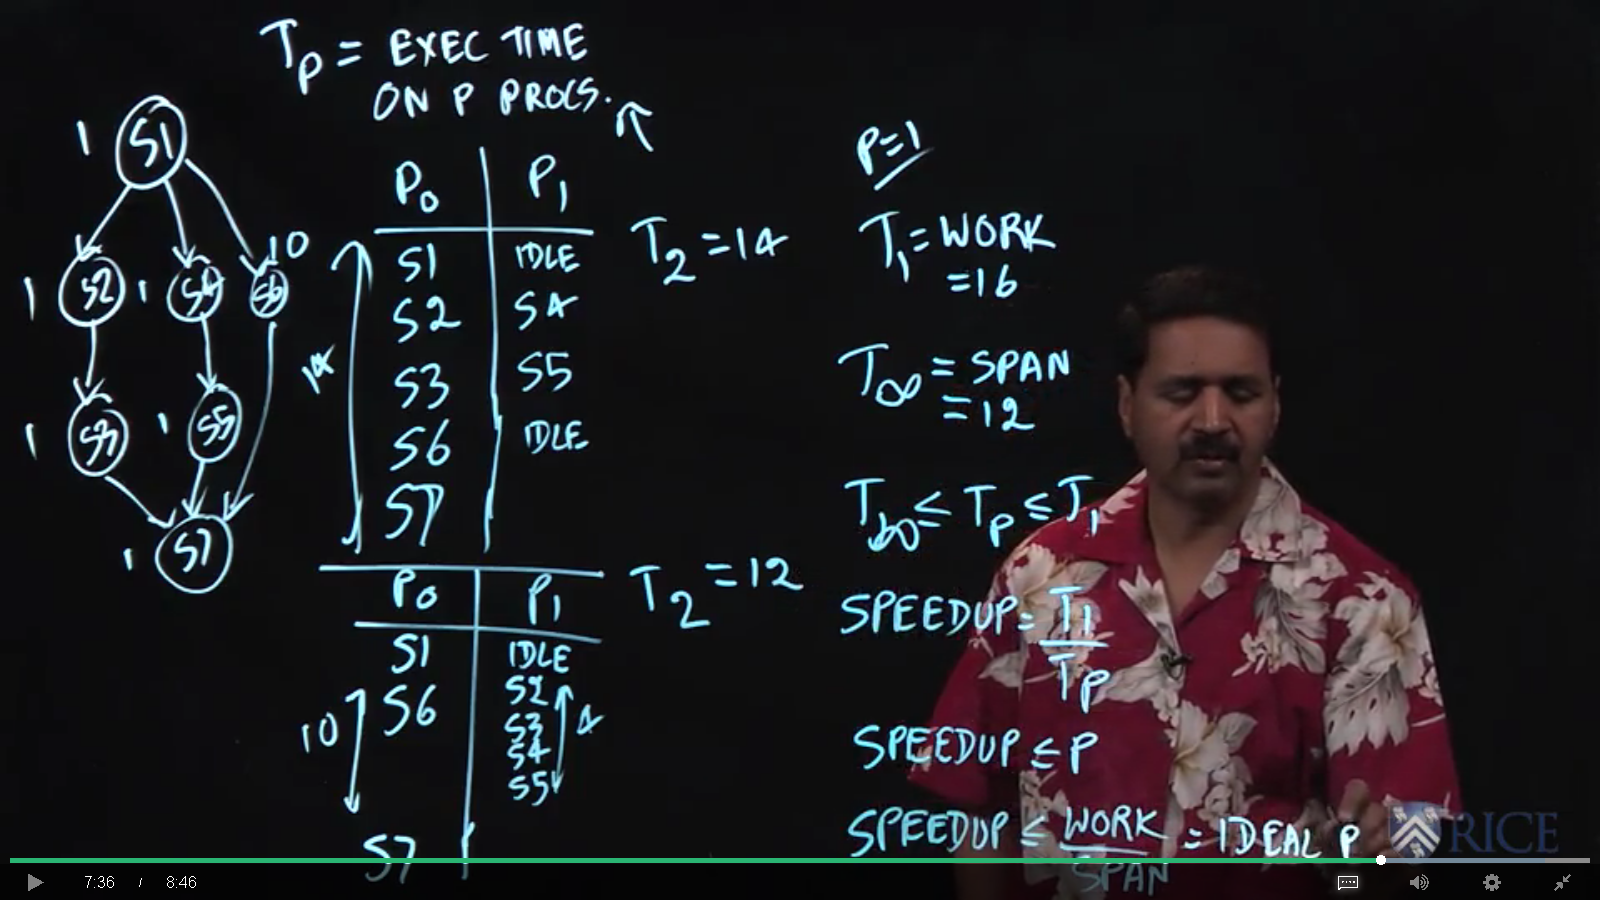 T_P = EXEC TIME
ON P PROCS.
1 S1
10
1 S2 1 S4 S6
1 S3 1 S5
1 S7
P0 P1
S1 IDLE
S2 S4
S3 S5
S6 IDLE
S7
14
T2 = 14
P0 P1
S1 IDLE
S6 S2
S3
S4
S5
S7
10
4
T2 = 12
P=1
T1 = WORK
= 16
T∞ = SPAN
= 12
T∞ ≤ TP ≤ T1
SPEEDUP = T1
TP
SPEEDUP ≤ P
SPEEDUP ≤ WORK = IDEAL P
SPAN
RICE
7:36 / 8:46